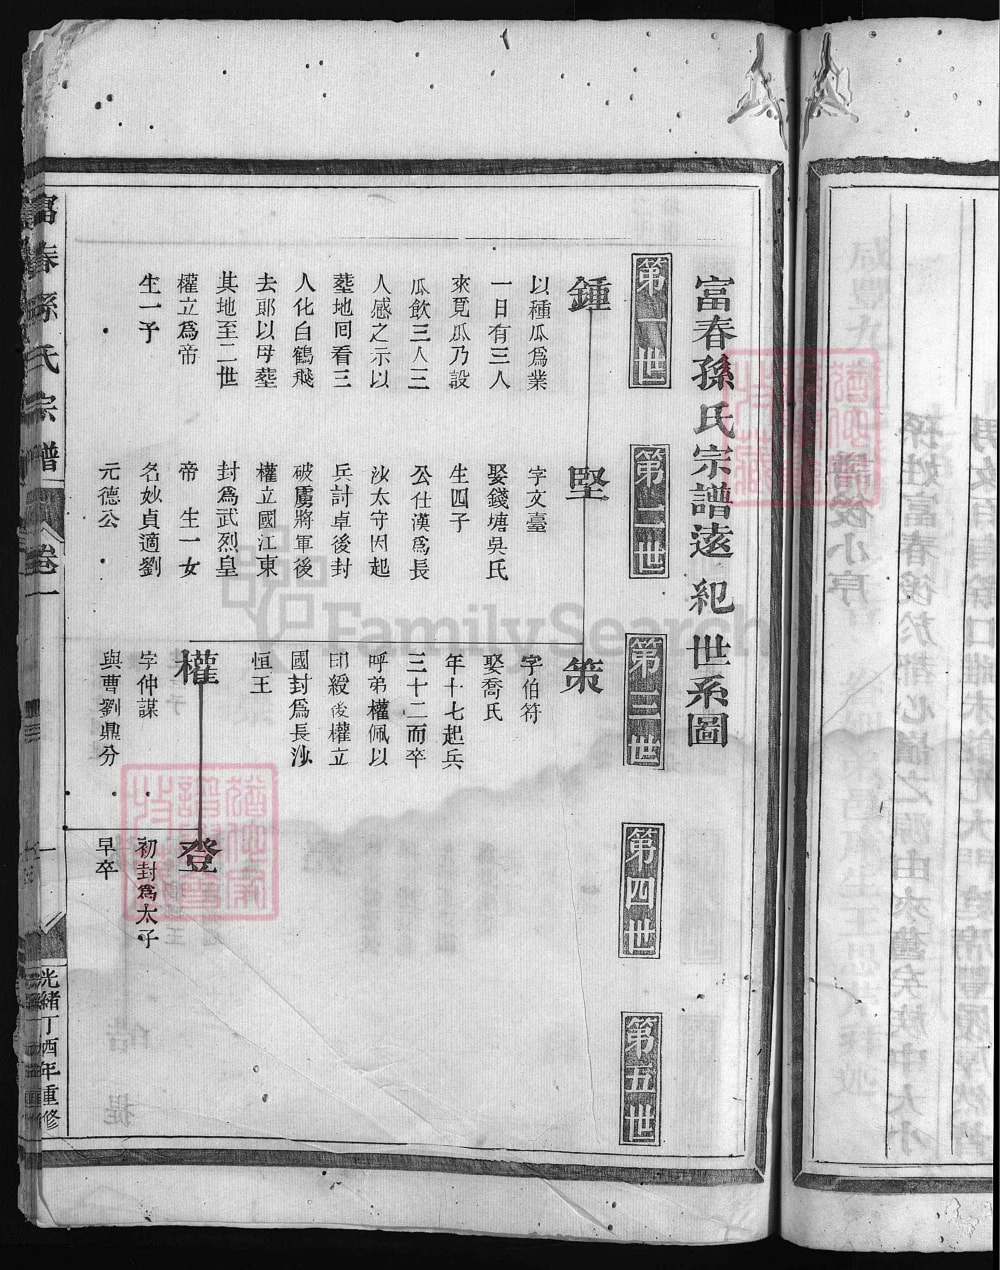 富春孫氏宗譜遠紀世系圖
第一世
第二世
第三世
第四世
第五世
鍾
以種瓜爲業
一日有三人
來覓瓜乃設
瓜飲三人三
人感之示以
塟地回看三
人化白鶴飛
去郎以母塟
其地至二世
權立爲帝
生一子
堅
字文臺
娶錢塘吳氏
生四子
公仕漢爲長
沙太守因起
兵討卓後封
破虜將軍後
權立國江東
封爲武烈皇
帝 生一女
名妙貞適劉
元德公
策
字伯符
娶喬氏
年十七起兵
三十二而卒
呼弟權佩以
印綬後權立
國封爲長沙
恒王
權
字仲謀
與曹劉鼎分
登
初封爲太子
早卒
富春孫氏宗譜
卷一
一
光緒丁酉年重修
FamilySearch